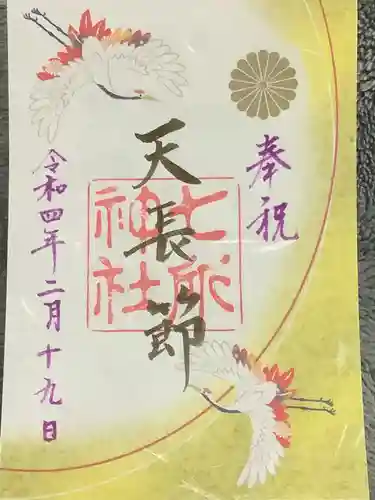 奉祝
天長節
七所神社
令和四年二月十九日